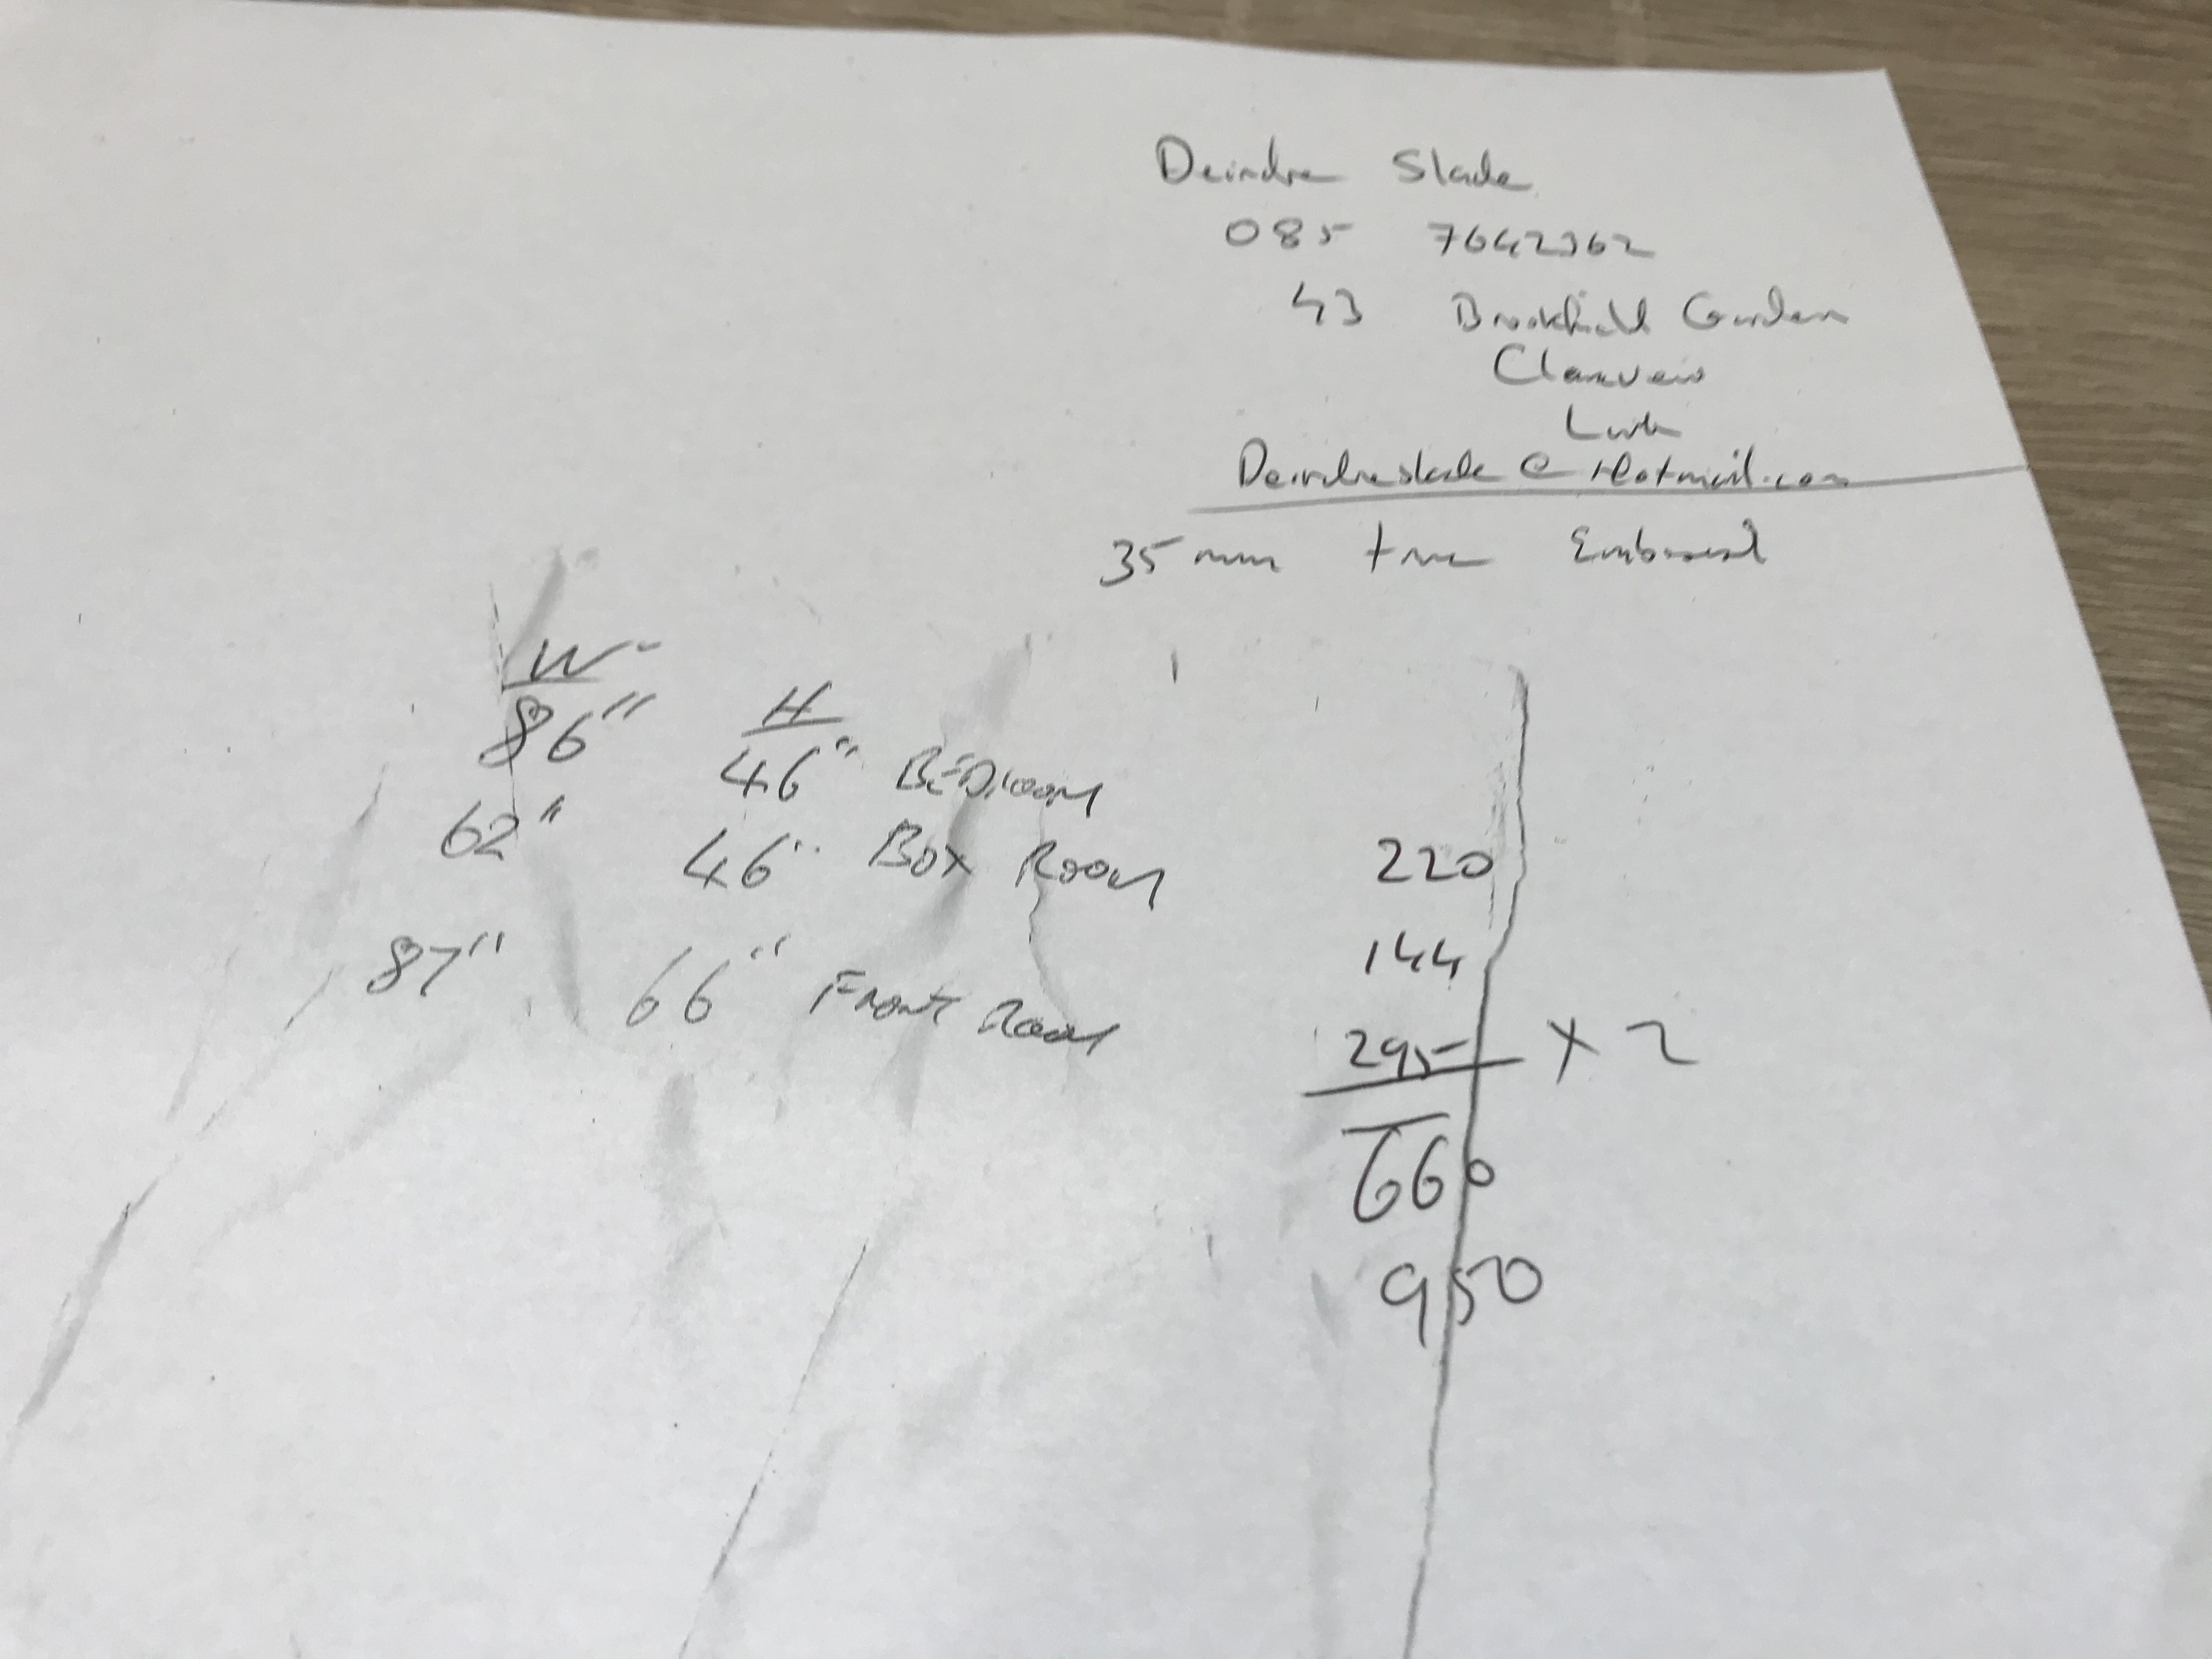 Deirdre Slade
085 7642362
43 Brookfield Gardens
Clareview
Deirdreslade@Hotmail.com
35mm true Embossed
W H
86" 46" BEDroom
62" 46" Box Room 220
144
87" 66" Front Room 295 x 2
660
950